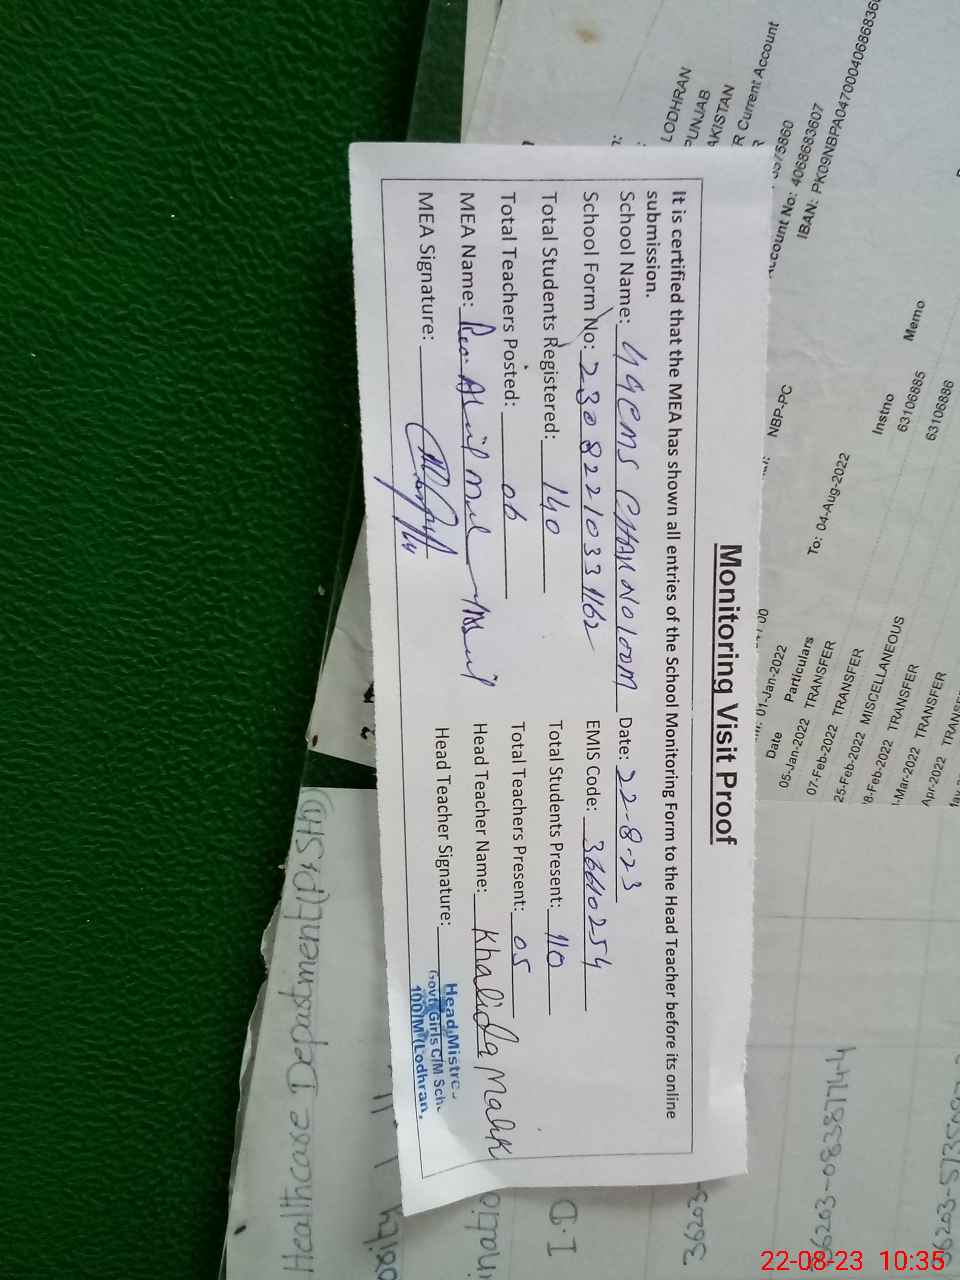 Monitoring Visit Proof
It is certified that the MEA has shown all entries of the School Monitoring Form to the Head Teacher before its online
submission.
School Name: GGCMS CHAK NO 100M Date: 22-8-23
School Form No: 23082210331162 EMIS Code: 36610254
Total Students Registered: 140 Total Students Present: 110
Total Teachers Posted: 06 Total Teachers Present: 05
MEA Name: Head Teacher Name: Khalida Malik
MEA Signature: Head Teacher Signature:
Head Mistre
Govt. Girls C/M Scho
100/M (Lodhran.
LODHRAN
PUNJAB
AKISTAN
R Current Account
count No: 4068683607
IBAN: PK09NBPA047000406868360
NBP-PC
To: 04-Aug-2022
Instno Memo
63106885
63106886
01-Jan-2022
Date Particulars
05-Jan-2022 TRANSFER
07-Feb-2022 TRANSFER
25-Feb-2022 MISCELLANEOUS
8-Feb-2022 TRANSFER
-Mar-2022 TRANSFER
Apr-2022 TRANSF
Healthcare Department (DSHD)
I.D
36203-
36203-0838174-4
22-08-23 10:35